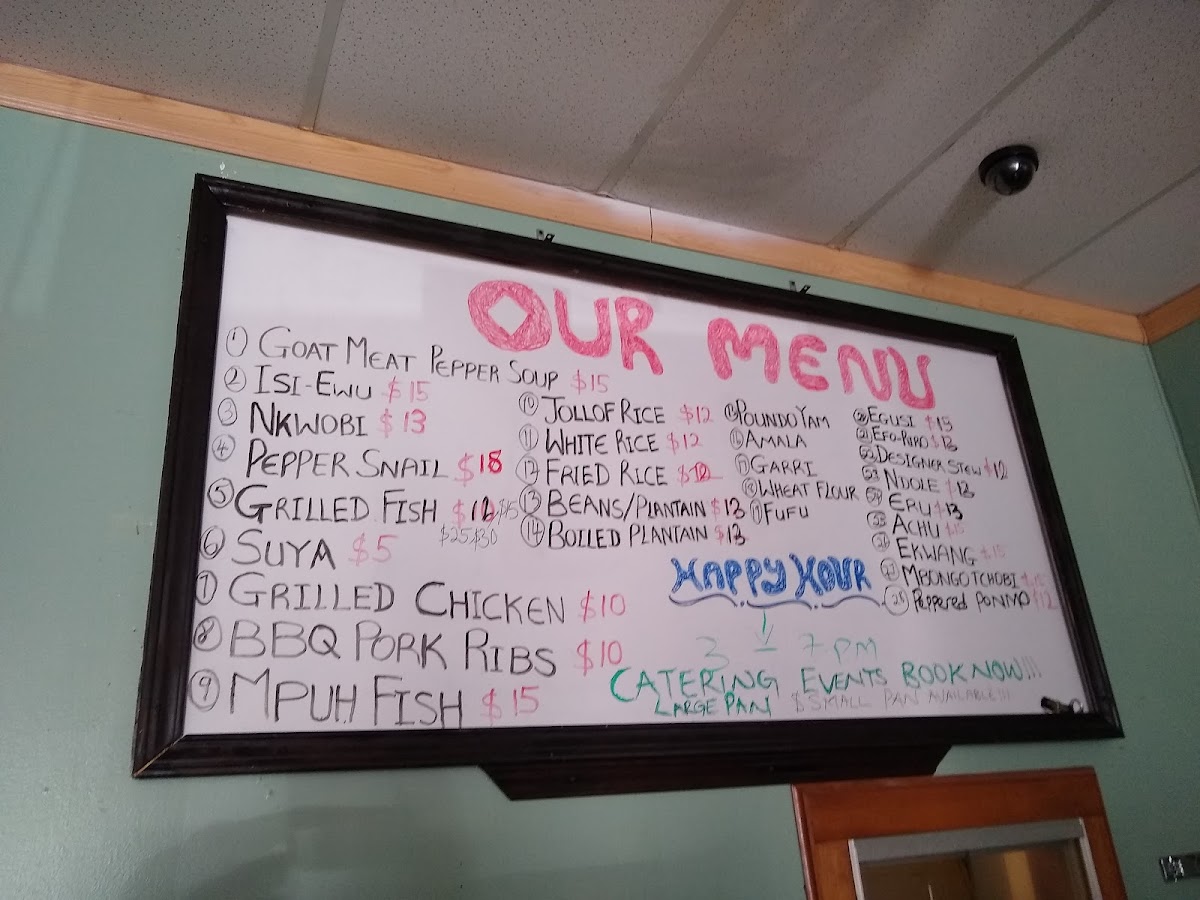 OUR MENU
① GOAT MEAT PEPPER SOUP $15
② ISI-EWU $15
③ NKWOBI $13
④ PEPPER SNAIL $18
⑤ GRILLED FISH $15
$25 $30
⑥ SUYA $5
⑦ GRILLED CHICKEN $10
⑧ BBQ PORK RIBS $10
⑨ MPUH FISH $15
⑩ JOLLOF RICE $12
⑪ WHITE RICE $12
⑫ FRIED RICE $12
⑬ BEANS/PLANTAIN $13
⑭ BOILED PLANTAIN $13
POUNDO YAM
⑯ AMALA
⑰ GARRI
⑱ WHEAT FLOUR
FUFU
⑳ EGUSI $15
㉑ EFO-RIRO $13
㉒ DESIGNER STEW $12
㉓ NDOLE $13
㉔ ERU $13
㉕ ACHU $15
㉖ EKWANG $15
㉗ MBONGOTCHOBI
㉘ Peppered PONMO $12
HAPPY HOUR
3 - 7 PM
CATERING EVENTS BOOK NOW!!!
LARGE PAN $ SMALL PAN AVAILABLE!!!